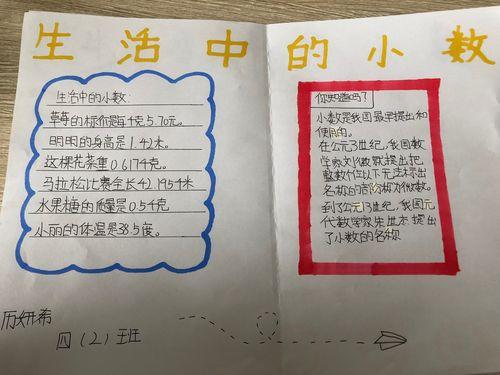 生活中的小数
生活中的小数:
草莓的标价是每千克5.70元。
明明的身高是1.42米。
这棵花菜重0.6174克。
马拉松比赛全长42.1954米
水果糖的质量是0.54克
小丽的体温是38.5度。
你知道吗?
小数是我国最早提出和
使用的。
在公元3世纪,我国数
学家刘徽就提出把
整数个位以下无法标出
名称的部分称为微数。
到了公元13世纪,我国元
代数学家朱世杰提出
了小数的名称
历妍希
四(2)班